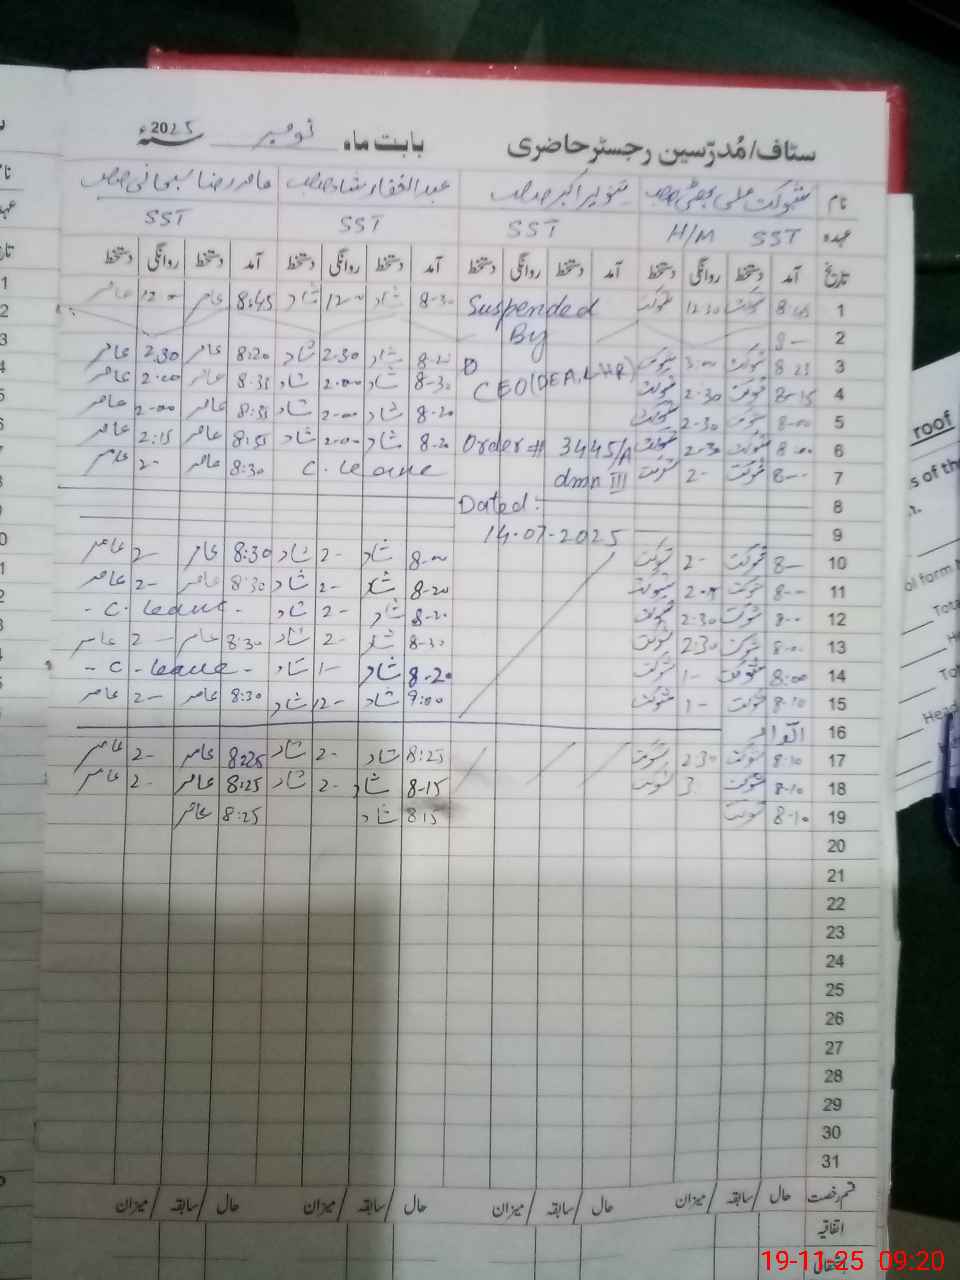 سٹاف/مُدرّسین رجسٹر حاضری بابت ماہ نومبر 2025ء
نام شوکت علی بھٹی صاحب تنویر اکبر صاحب عبدالغفار شاد صاحب عامر رضا سبحانی صاحب
عہدہ SST H/M SST SST SST
تاریخ آمد دستخط روانگی دستخط آمد دستخط روانگی دستخط آمد دستخط روانگی دستخط آمد دستخط روانگی دستخط
1 8:45 شوکت 12:30 شوکت Suspended 8-30 شاد 12- شاد 8:45 عامر 12- عامر
2 8- By
3 8:25 شوکت 3:00 شوکت 8-20 شاد 2:30 شاد 8:20 عامر 2:30 عامر
4 8-15 شوکت 2:30 شوکت CEO(DEA, LHR) 8-30 شاد 2:00 شاد 8:35 عامر 2:00 عامر
5 8-00 شوکت 2-30 شوکت 8-20 شاد 2-00 شاد 8:35 عامر 2-00 عامر
6 8-00 شوکت 2-30 شوکت Order # 3445/A 8-20 شاد 2-00 شاد 8:55 عامر 2:15 عامر
7 8-- شوکت 2- شوکت dmn III C. leave 8:30 عامر 2- عامر
8 Dated:
9 14-07-2025
10 8- شوکت 2- شوکت 8-00 شاد 2- شاد 8:30 عامر 2- عامر
11 8-- شوکت شوکت 8-20 شاد 2- شاد 8:30 عامر 2- عامر
12 8-- شوکت 2:30 شوکت 8-20 شاد 2- شاد - C. leave -
13 8-00 شوکت 2:30 شوکت 8-30 شاد 2- شاد 8:30 عامر 2- عامر
14 8:00 شوکت 1- شوکت 8-20 شاد 1- شاد - C. leave -
15 8-10 شوکت 1- شوکت 9:00 شاد 12- شاد 8:30 عامر 2- عامر
16 اتوار
17 8-10 شوکت 2:30 شوکت 8:25 شاد 2- شاد 8:25 عامر 2- عامر
18 8-10 شوکت 3 شوکت 8-15 شاد 2- شاد 8:25 عامر 2- عامر
19 8-10 شوکت 8:15 شاد 8:25 عامر
20
21
22
23
24
25
26
27
28
29
30
31
قسم رخصت حال /سابقہ /میزان حال /سابقہ /میزان حال /سابقہ /میزان حال /سابقہ /میزان
اتفاقیہ
roof
s of the
ol form
Tota
He
Tot
Head
19-11-25 09:20